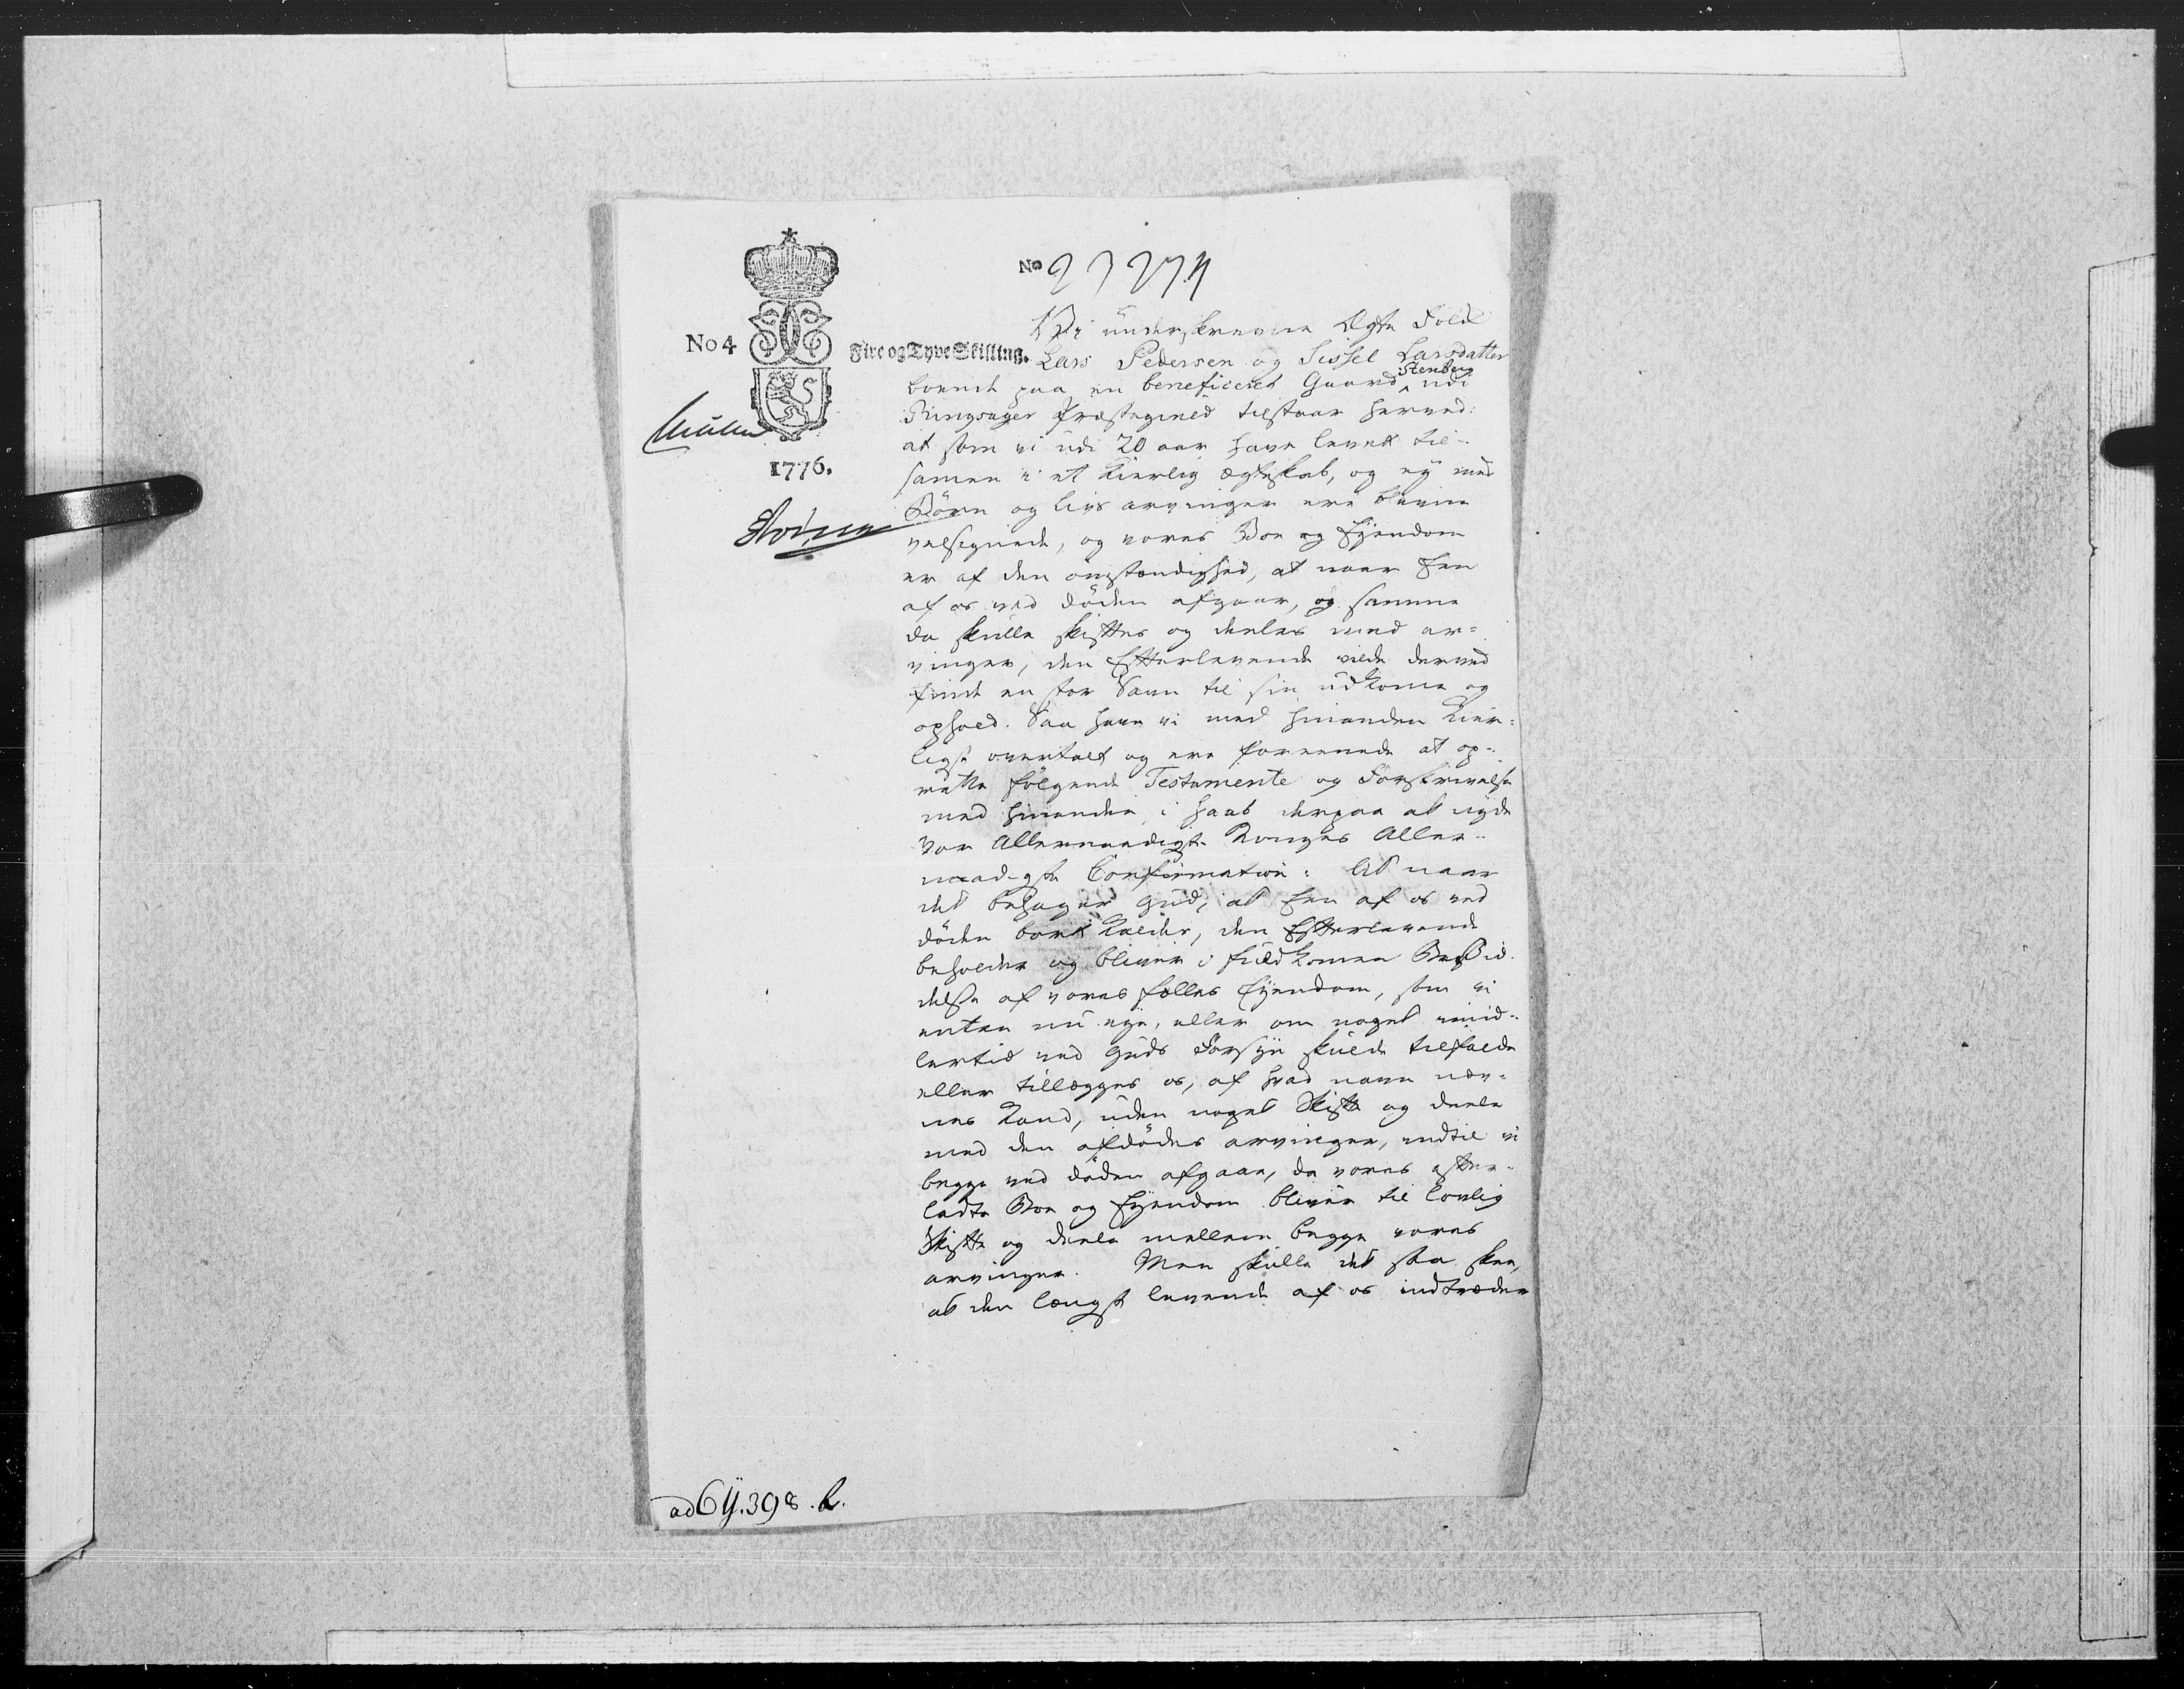 No 23274
No 4
Fire og Tyve Skilling.
1776.
Vi underskrevne Ægte Folck
Lars Pedersen og Sissel Larsdatter
boende paa en beneficeret Gaard Stenberg udi
Ringsager Præstegield tilstaar herved:
at som vi udi 20 aar have levet til-
samen i et Kierlig ægteskab, og ey med
Børn og livs arvinger ere blevne
velsignede, og vores Boe og Eyendom
er af den omstændighed, at naar Een
af os ved døden afgaar, og samme
da skulle skiftes og deeles med ar=
vinger, den Efterlevende vilde derved
finde en stor Savn til sin udkome og
ophold. Saa have vi med hinanden Kier=
ligst overtalt og ere foreenede at op-
rette følgende Testamente og Forskrivelse
med hinanden i haab derpaa at nyde
Vor Allernaadigste Konges Aller-
naadigste Confirmation: At naar
det behager Gud, at Een af os ved
døden bort kalder, den Efterlevende
beholder og bliver i fuldkomen Besid-
delse af vores fælles Eyendom, som vi
enten nu eye, eller om noget imid-
lertid ved Guds Forsyn skulde tilfalde
eller tillægges os, af hvad navn næv-
nes kand, uden noget Skifte og deele
med den afdødes arvinger, indtil vi
begge ved døden afgaae, da vores efter-
ladte Boe og Eyendom bliver til lovlig
Skifte og deele mellem begge vores
arvinger. Men skulle det saa skee,
at den længst levende af os indtræder
ad 6 y. 398. b.